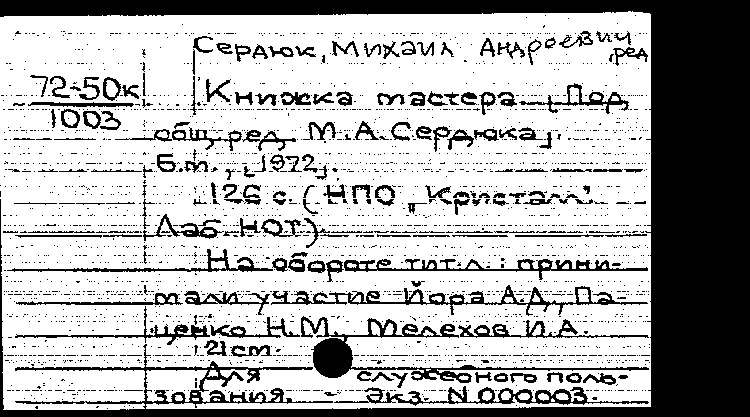 Сердюк, Михаил Андреевич, ред.
72-50к
1003
Книжка мастера. [Под
общ. ред. М.А. Сердюка].
Б.м., [1972].
126 с. (НПО „Кристалл".
Лаб. НОТ).
На обороте тит. л.: прини-
мали участие Йора А.Д., Па-
ценко Н.М., Мелехов И.А.
21 см.
Для служебного поль-
зования. - Экз. N 000003.